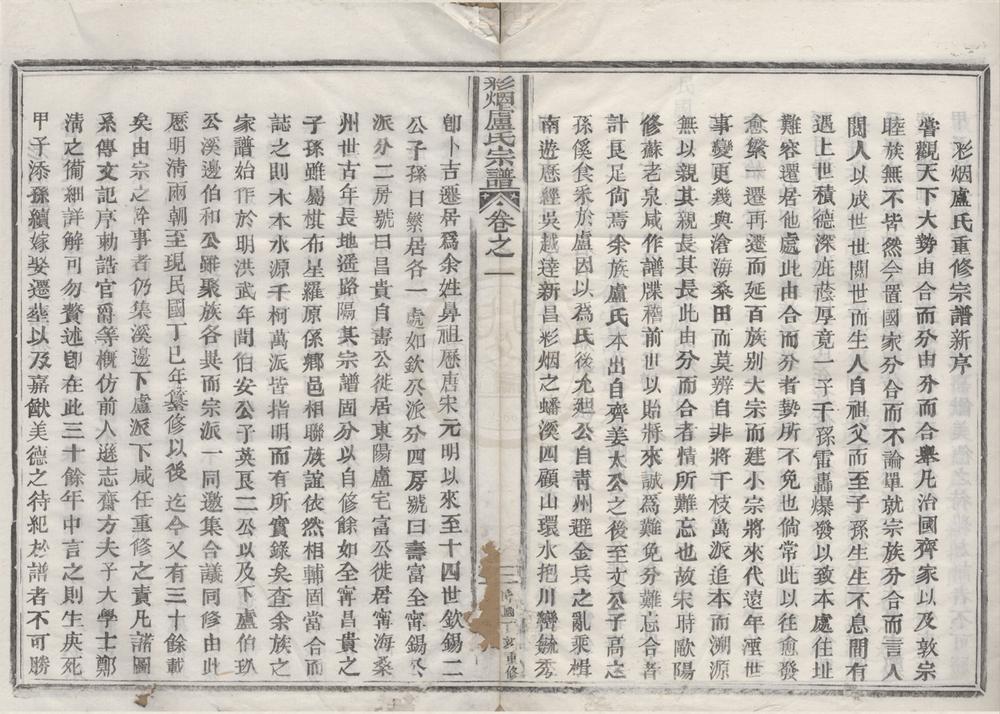 彩烟盧氏重修宗譜新序
嘗觀天下大勢由合而分由分而合舉凡治國齊家以及敦宗
睦族無不皆然今置國家分合而不論單就宗族分合而言人
閱人以成世世閱世而生人自祖父而至子孫生生不息間有
遇上世積德深疵蔭厚竟一子千孫雷轟爆發以致本處住址
難容遷居他處此由合而分者勢所不免也倘常此以往愈發
愈繁一遷再遷而延百族別大宗而建小宗將來代遠年湮世
事變更幾與滄海桑田而莫辨自非將千枝萬派追本而溯源
無以親其親長其長此由分而合者情所難忘也故宋時歐陽
修蘇老泉咸作譜牒稽前世以貽將來誠為難免分難忘合者
計良足尚焉余族盧氏本出自齊姜太公之後至文公子高之
孫傒食釆於盧因以為氏後允廻公自青州避金兵之亂乘楫
南遊歷經吳越達新昌彩烟之蟠溪四顧山環水抱川巒毓秀
彩烟盧氏宗譜 卷之一
三 國丁亥重修
卽卜吉遷居爲余姓鼻祖歷唐宋元明以來至十四世欽錫二
公子孫日繁居各一處如欽公派分四房號曰壽富全甯錫公
派分二房號曰昌貴自壽公徙居東陽盧宅富公徙居甯海桑
州世古年長地遥路隔其宗譜固分以自修餘如全甯昌貴之
子孫雖屬棋布星羅原係鄉邑相聯族誼依然相輔固當合而
誌之則木本水源千柯萬派皆指明而有所實錄矣查余族之
家譜始作於明洪武年間伯安公子英良二公以及下盧伯玖
公溪邊伯和公雖聚族各異而宗派一同邀集合議同修由此
歷明清兩朝至現民國丁巳年纂修以後迄今又有三十餘載
矣由宗之幹事者仍集溪邊下盧派下咸任重修之責凡譜圖
系傳文記序勅誥官爵等概仿前人遜志齋方夫子大學士鄭
清之備細詳解可勿贅述卽在此三十餘年中言之則生庚死
甲子添孫續嫁娶遷塟以及嘉猷美德之待紀於譜者不可勝